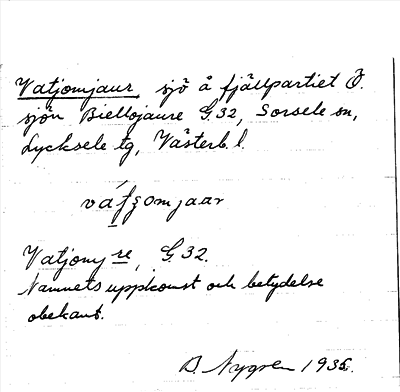 Vatjomjaur, sjö å fjällpartiet Ö.
sjön Biellojaure G.32, Sorsele sn,
Lycksele tg, Västerb. l.
Vatjomj re, G.32.
Namnets uppkomst och betydelse
obekant.
B. Nygren 1935.